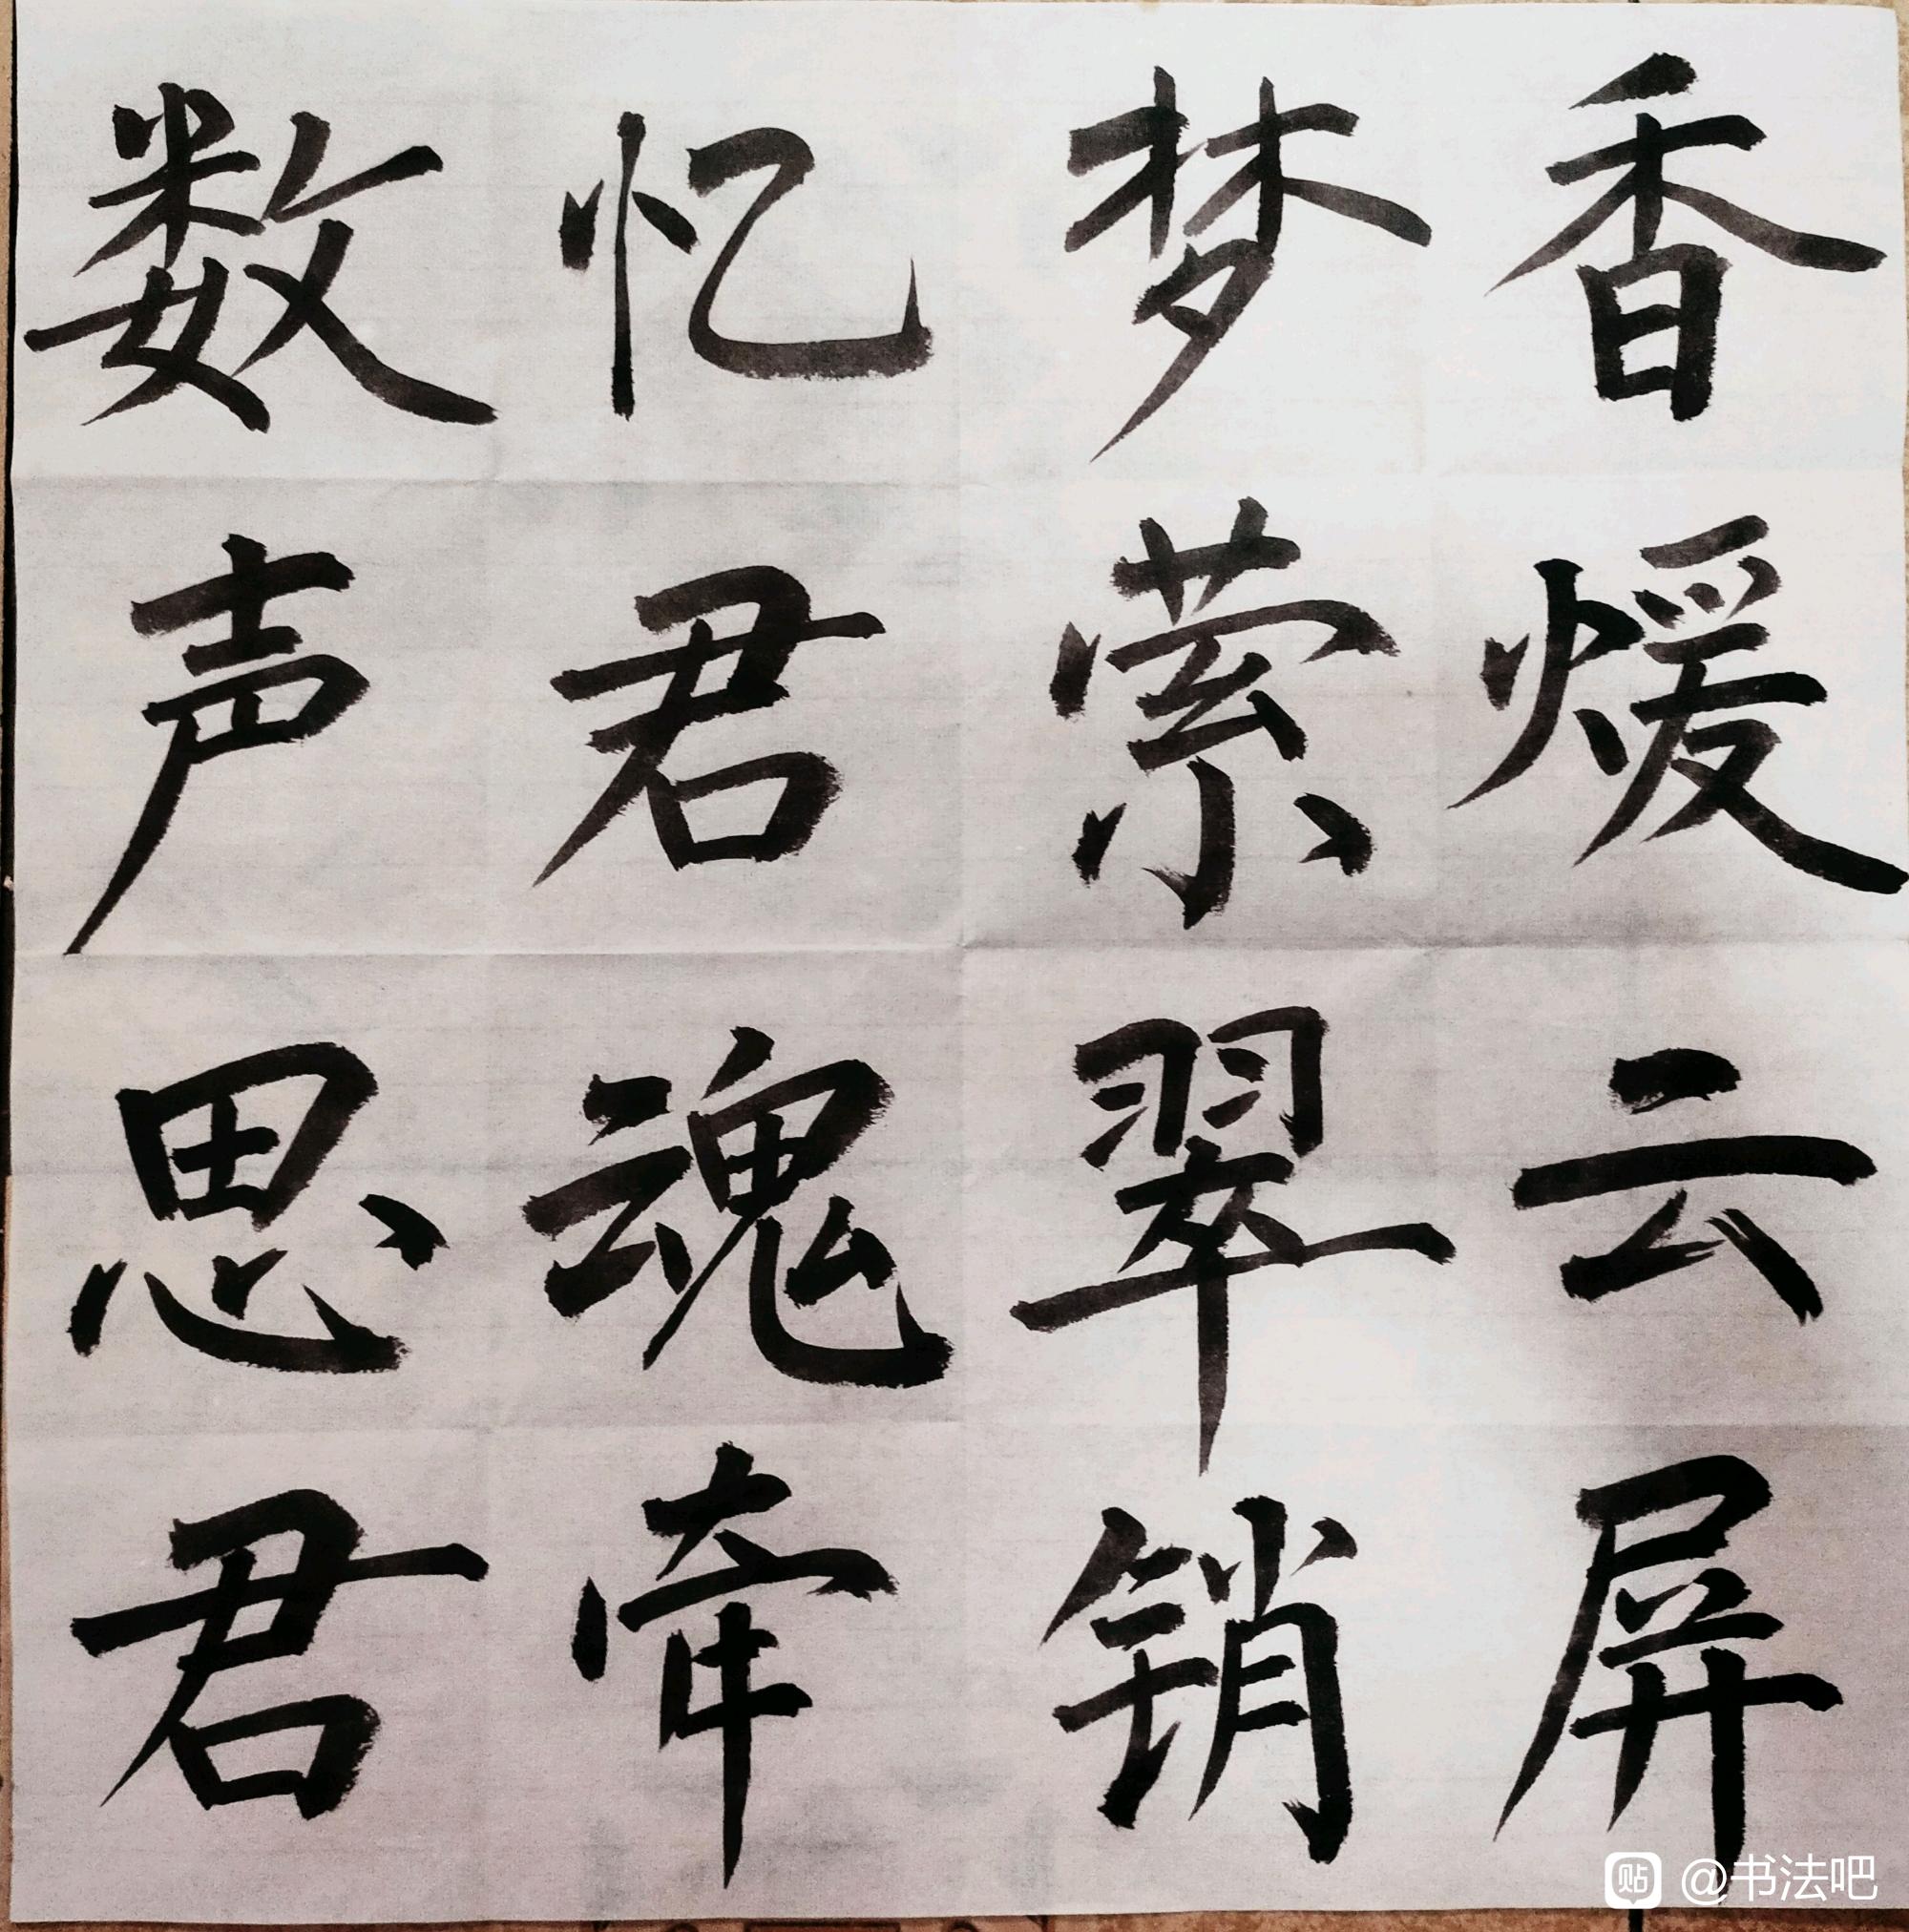 香煖云屏
梦萦翠销
忆君魂牵
数声思君
贴 @书法吧